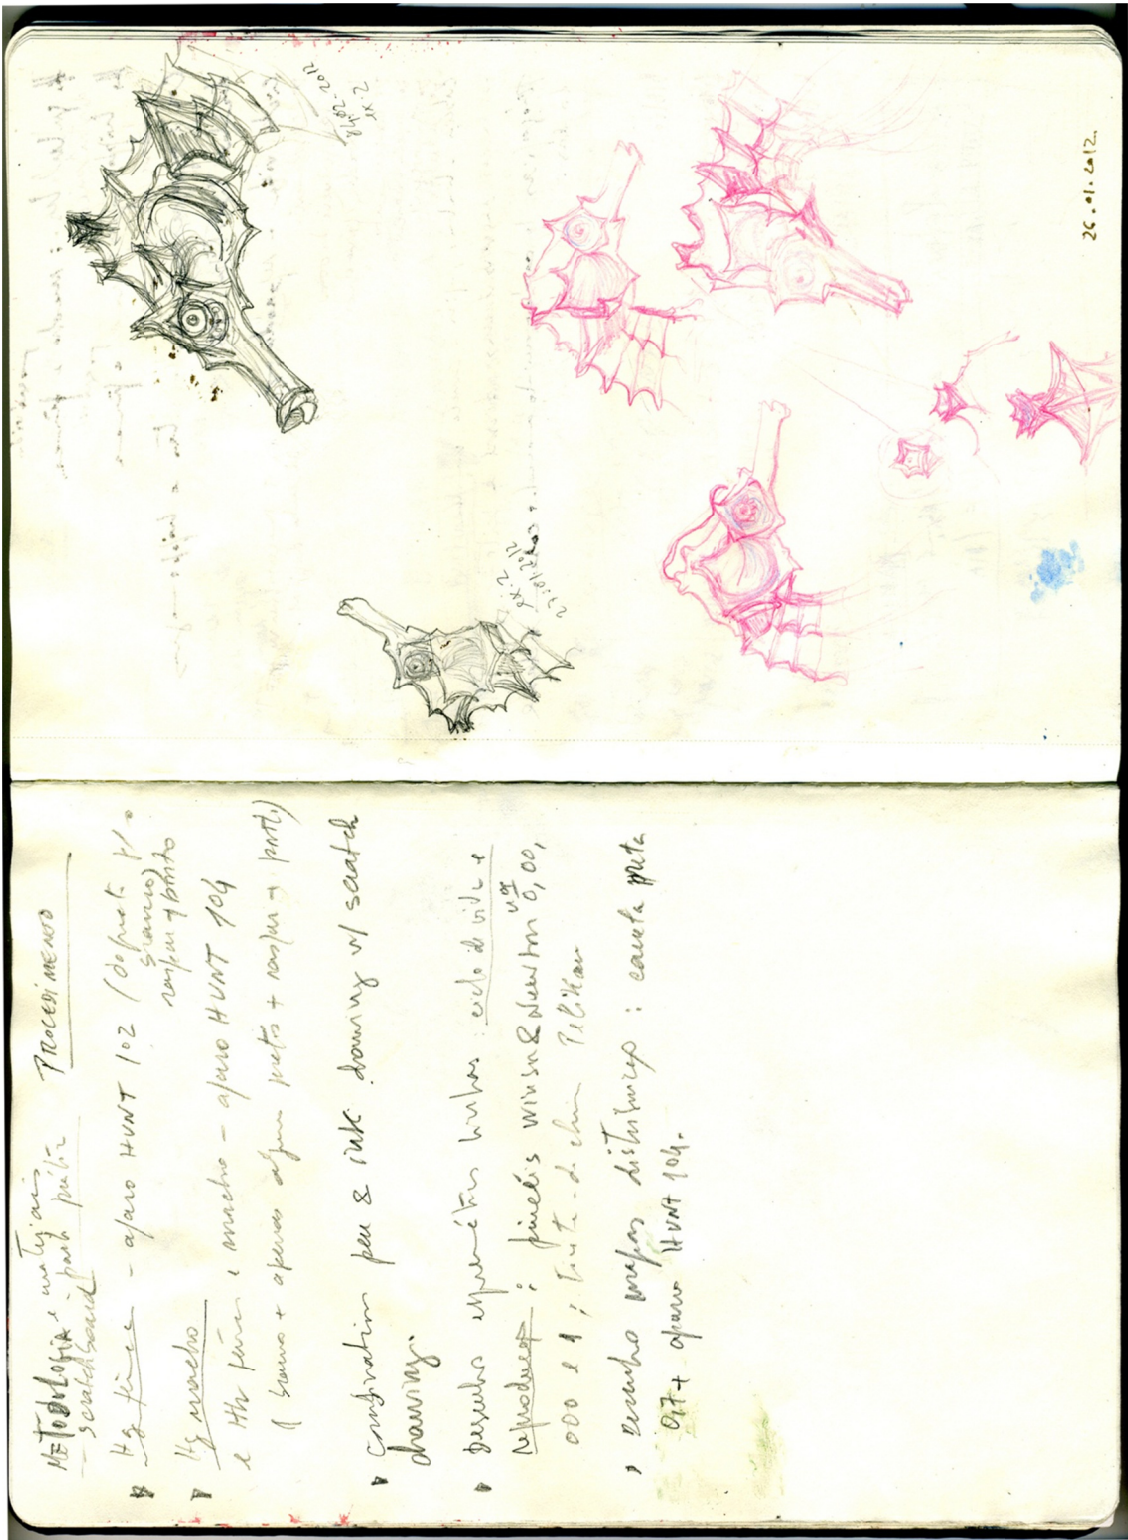 METODOLOGIA e materiais PROCEDIMENTO
- scratchboard - parte prática
Hg fêmea - aparo HUNT 102 (do preto p/ o
branco)
raspar → preto
Hg macho
e Hh fêmea e macho - aparo HUNT 104
(branco + apenas alguns pretos + raspar → preto)
combination pen & ink drawing w/ scratch
drawing.
Desenhos esquemáticos linhas: ciclo de vida e
reprodução: pincéis Winsor & Newton nos 0, 00,
000 e 1; tinta-da-china Pelikan
Desenho mapas distribuição: caneta preta
0,7 + aparo HUNT 104.
02-2012
ex. 2
ex. 2
27.01.2012
26.01.2012.